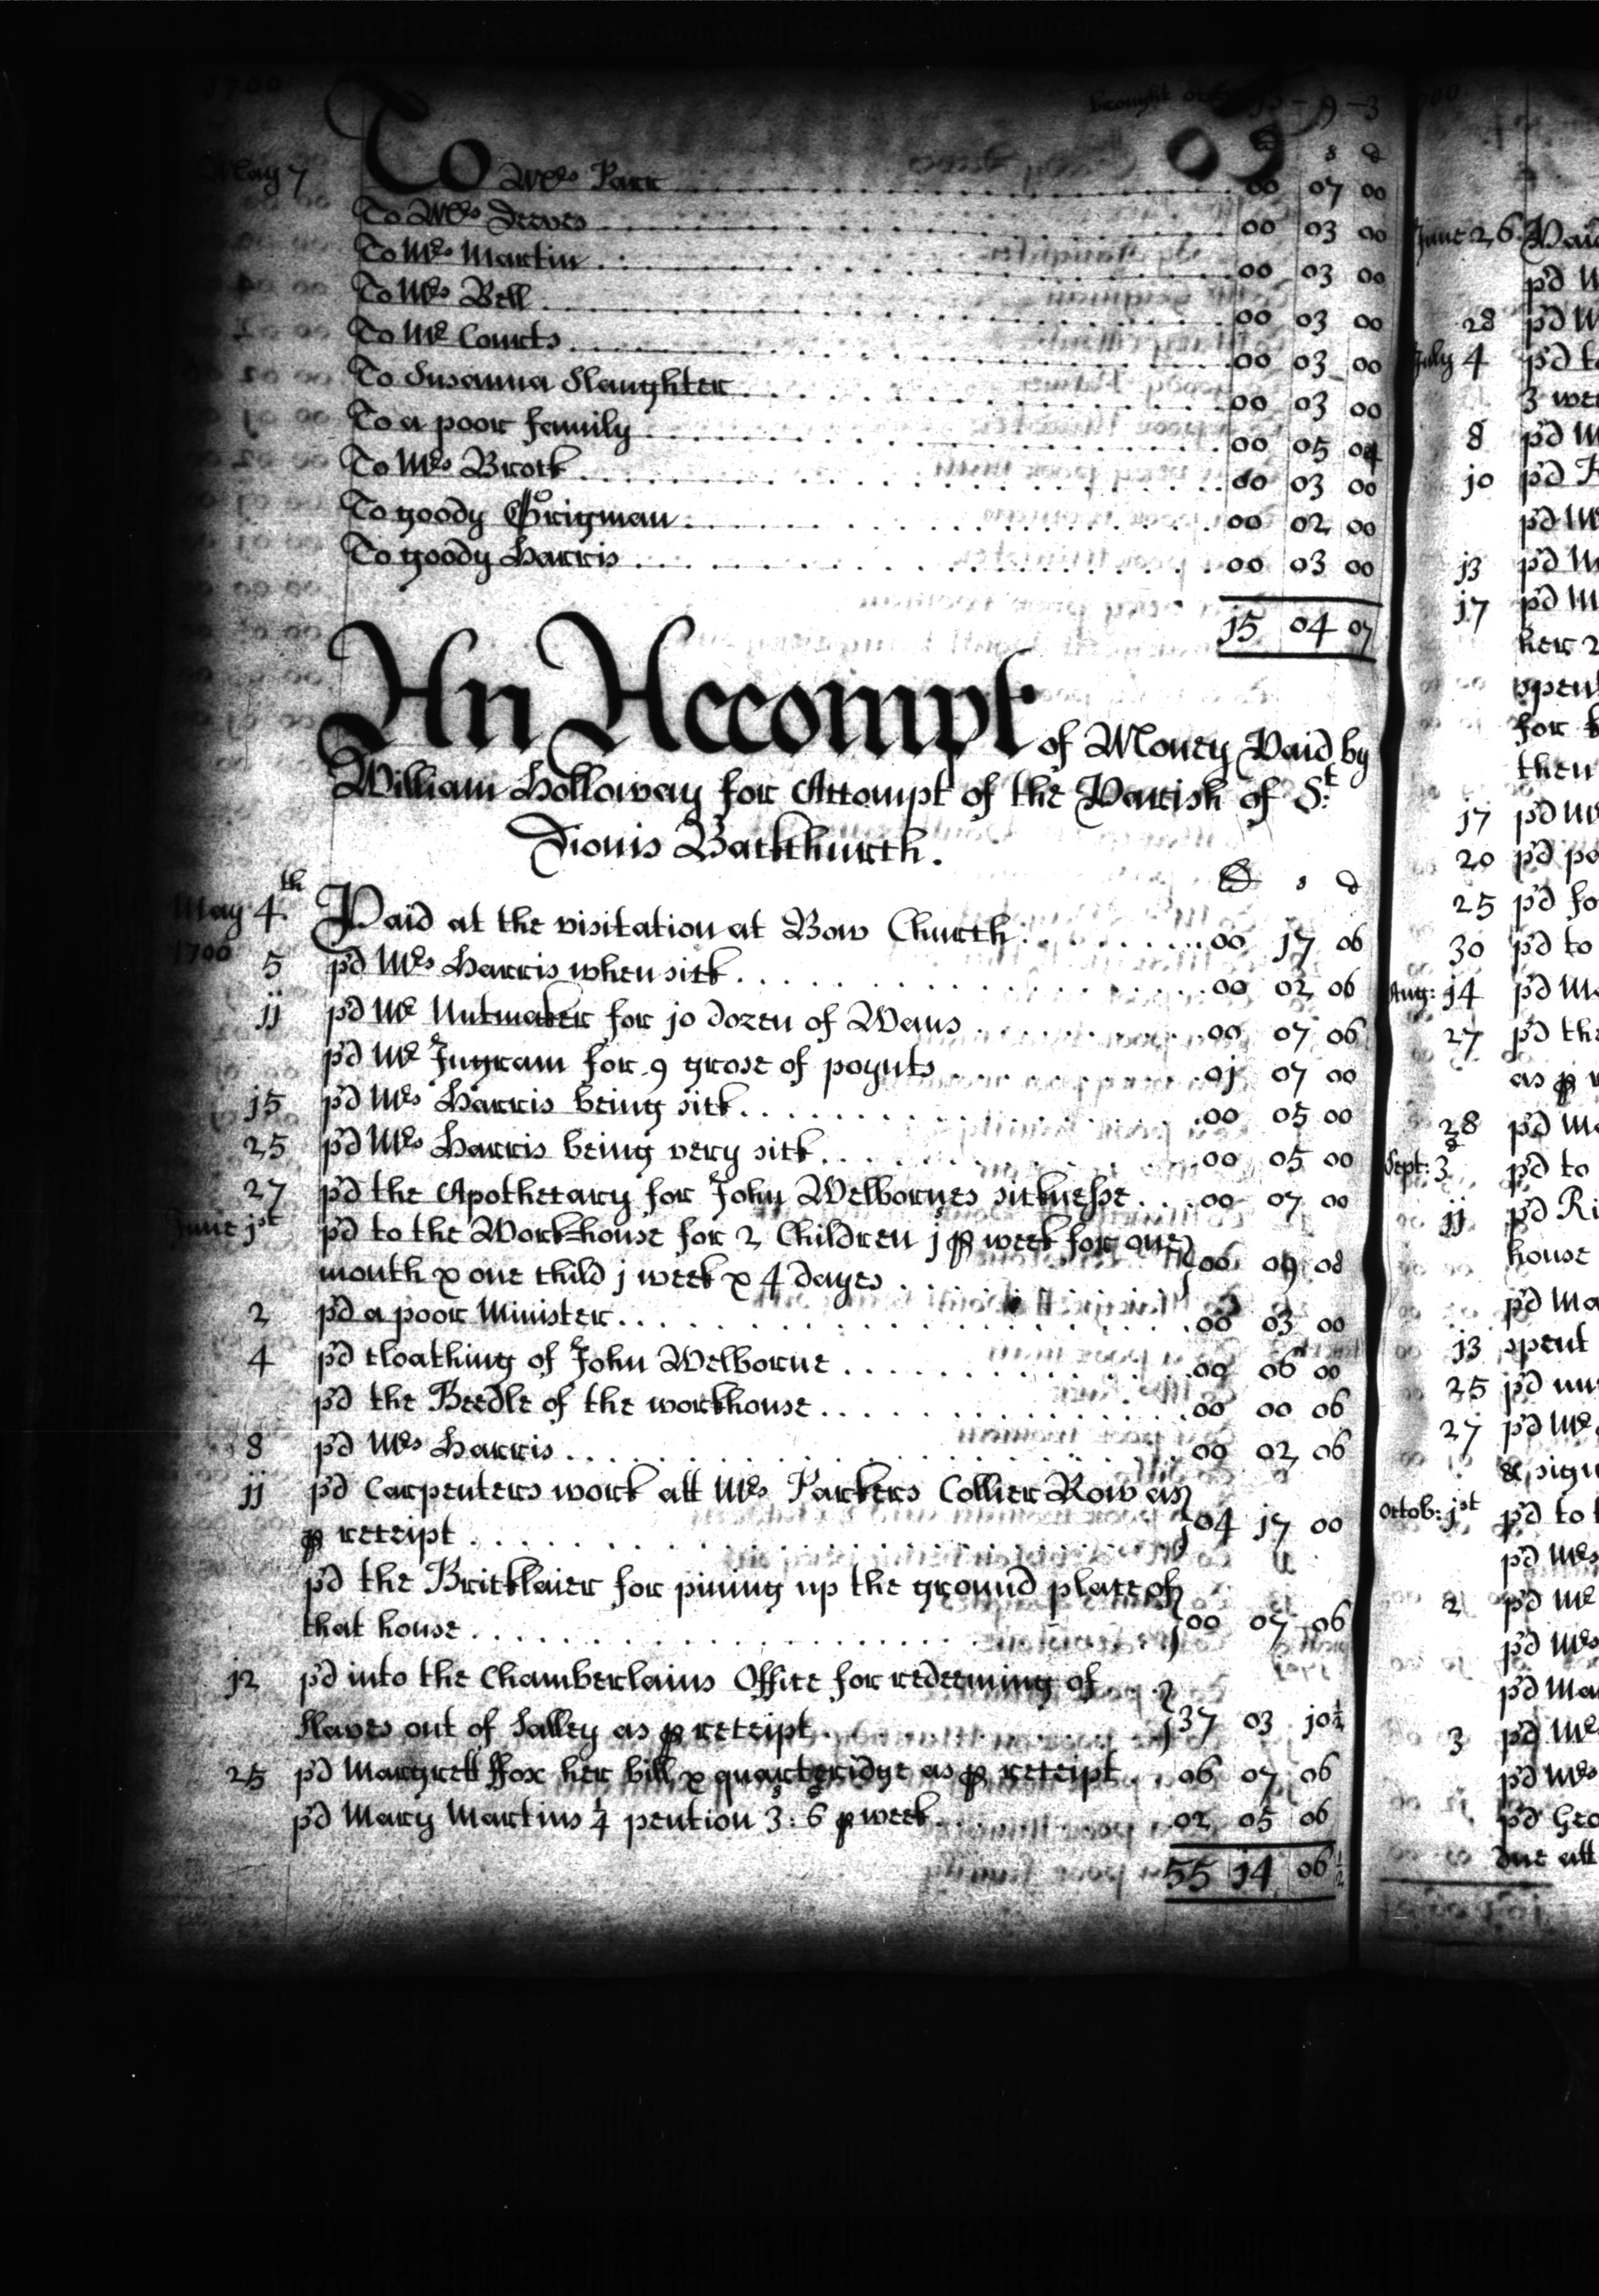 1700 brought over 13 - 9 - 3
s d
May 7 To Mrs Parr 00 07 00
To Mrs Deeves 00 03 00
To Mrs Martin 00 03 00
To Mrs Bell 00 03 00
To Mr Courts 00 03 00
To Susanna Slaughter 00 03 00
To a poor family 00 05 04
To Mrs Brock 00 03 00
To goody Grigman 00 02 00
To goody Harris 00 03 00
15 04 07
An Accompt of Money Paid by
William Holloway for Accompt of the Parish of St
Dionis Backchurch.
s d
May 4th Paid at the visitation at Bow Church 00 17 06
1700
5 pd Mrs Harris when sick 00 02 06
jj pd Mr Nutmaker for jo dozen of Wans 00 07 06
pd Mr Ingram for 9 grose of poynts 0j 07 00
j5 pd Mrs Harris being sick 00 05 00
25 pd Mrs Harris being very sick 00 05 00
27 pd the Apothecary for John Welbornes sicknesse 00 07 00
June jst pd to the Work=house for 2 Children j p week for one
month & one child j week & 4 dayes 00 09 08
2 pd a poor Minister 00 03 00
4 pd cloathing of John Welborne 00 06 00
pd the Beedle of the workhouse 00 00 06
8 pd Mrs Harris 00 02 06
jj pd Carpenters work att Mrs Parkers Collier Row as
p receipt 04 j7 00
pd the Bricklaier for pining up the ground plate of
that house 00 07 06
j2 pd into the Chamberlains Office for redeeming of
slaves out of Salley as p receipt 37 03 jo½
25 pd Margrett ffox her bill & quarteridge as p receipt 06 07 06
pd Mary Martins ¼ pention 3s: 6d p week 02 05 06
55 j4 06½
June 26 Paid
pd M
28 pd M
July 4 pd to
3 wee
8 pd M
jo pd
pd Mr
j3 pd M
j7 pd M
her 2
spent
for
then
j7 pd Mr
20 pd po
25 pd fo
30 pd to
Aug: j4 pd M
27 pd the
as p
28 pd M
Sept: 3 pd to
jj pd Ri
house
pd Ma
j3 spent
25 pd nu
27 pd Mr
& sign
Octob: jst pd to
pd Mrs
2 pd Mr
pd Mrs
pd Ma
3 pd Mr
pd Mrs
pd Geo
due att